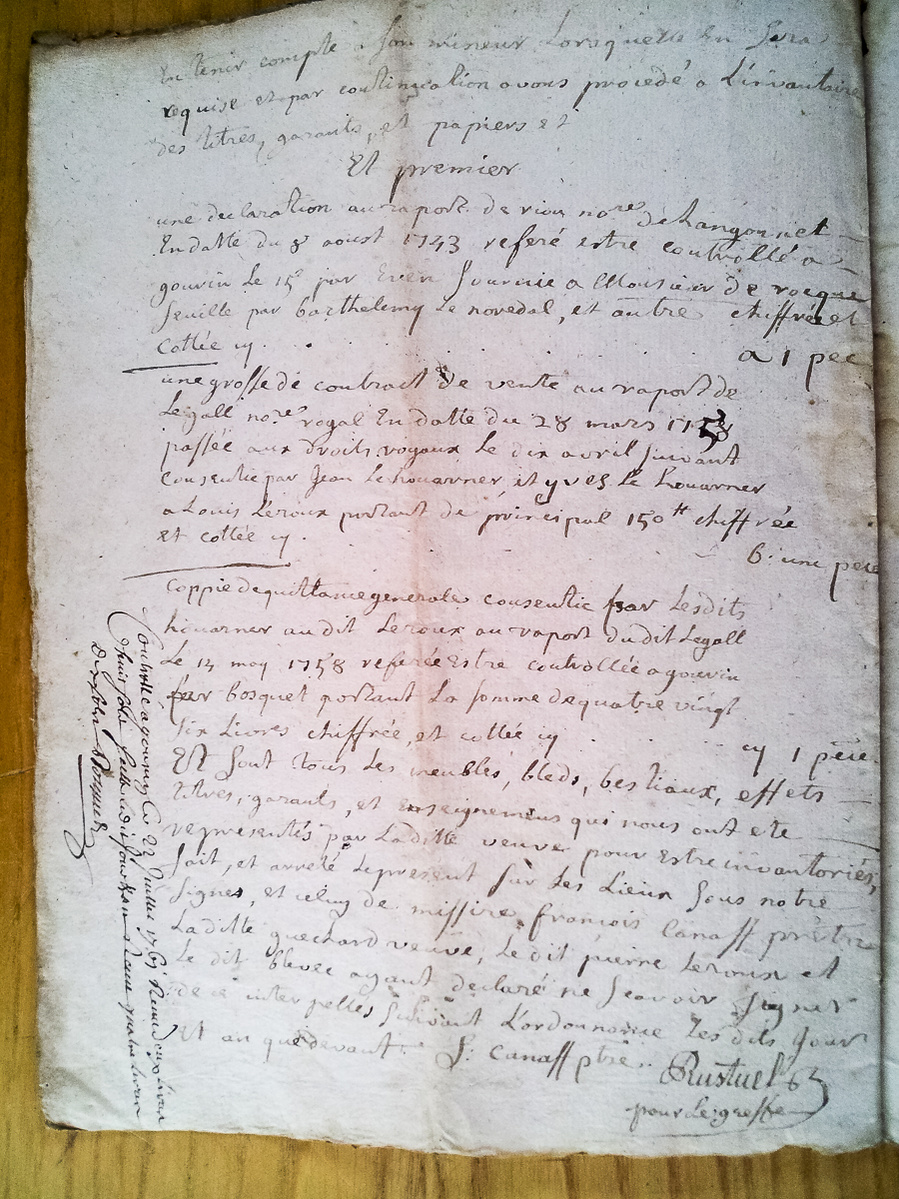 En tenir compte a son mineur Lorsquelle En Sera
requise et par continuation avons procedé a L'invantaire
des titres, garants, et papiers et
Et premier
une declaration au raport de riou nore de Langonnet
En datte du 8 aoust 1743 referé estre controllé a
gourin Le 15e par Even fournie a Monsieur de rocque
feuille par barthelemy Le noredal, et autre chiffrée et
Cottée
a 1 pee
une grosse de contract de vente au raport de
Legall nore royal En datte du 28 mars 1758
passée aux droits royaux Le dix avril suivant
Consentie par Jean Lehouarner, et yves Le houarner
a Louis Leroux portant de principal 150tt chiffrée
et cottée
b: une peie
Coppie de quittance generale consentie par Lesdits
houarner au dit Leroux au raport dudit Legall
Le 14 may 1758 referée Estre controllée a gourin
par bosquet portant La somme de quatre vingt
six Livres chiffrée, et cottée
1 peie
Et Sont tous Les meubles, bleds, bestiaux, effets
titres, garants, et Enseignemens qui nous ont ete
representés par Laditte veuve pour Estre invantoriés,
fait, et arreté Lepresent Sur Les Lieux Sous notre
Signe, et celuy de missire françois Canaff prêtre
Laditte guechard veuve, Le dit pierre Leroux et
Le dit blevec ayant declaré ne Scavoir Signer
de ce interpellés Suivant L'ordonnance Les dits Jour
Et an que devant. f: Canaff ptre.
Rustuel
pour Le greffe
Controllé a gourin Ce 22 Juillet 176 Receu six livres